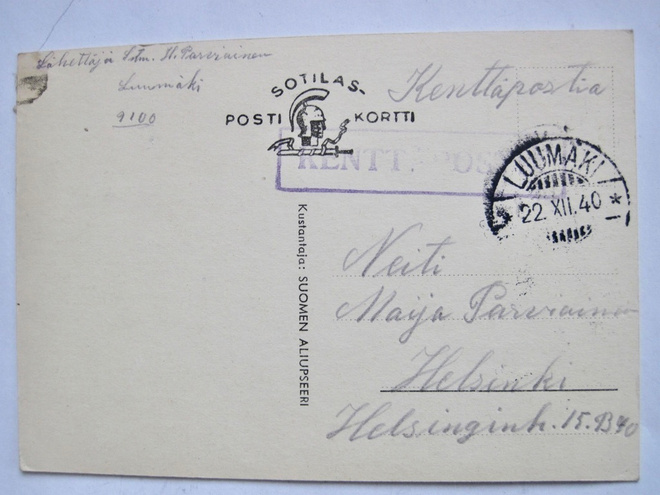 Lähettäjä Stm. H. Parviainen
Luumäki
9100
SOTILAS-
POSTI KORTTI
Kenttäpostia
KENTTÄPOSTIA
LUUMÄKI
22.XII.40
Kustantaja: SUOMEN ALIUPSEERI
Neiti
Maija Parviainen
Helsinki
Helsingink. 15. B 40